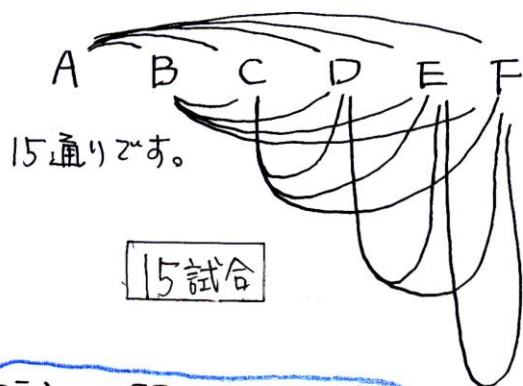 A B C D E F
15通りです。
15試合